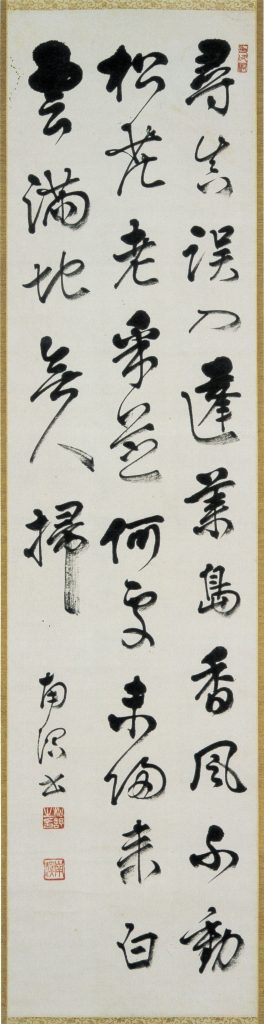 尋真誤入蓬萊島香風不動
松花老采芝何處未歸來白
雲滿地無人掃
南 書